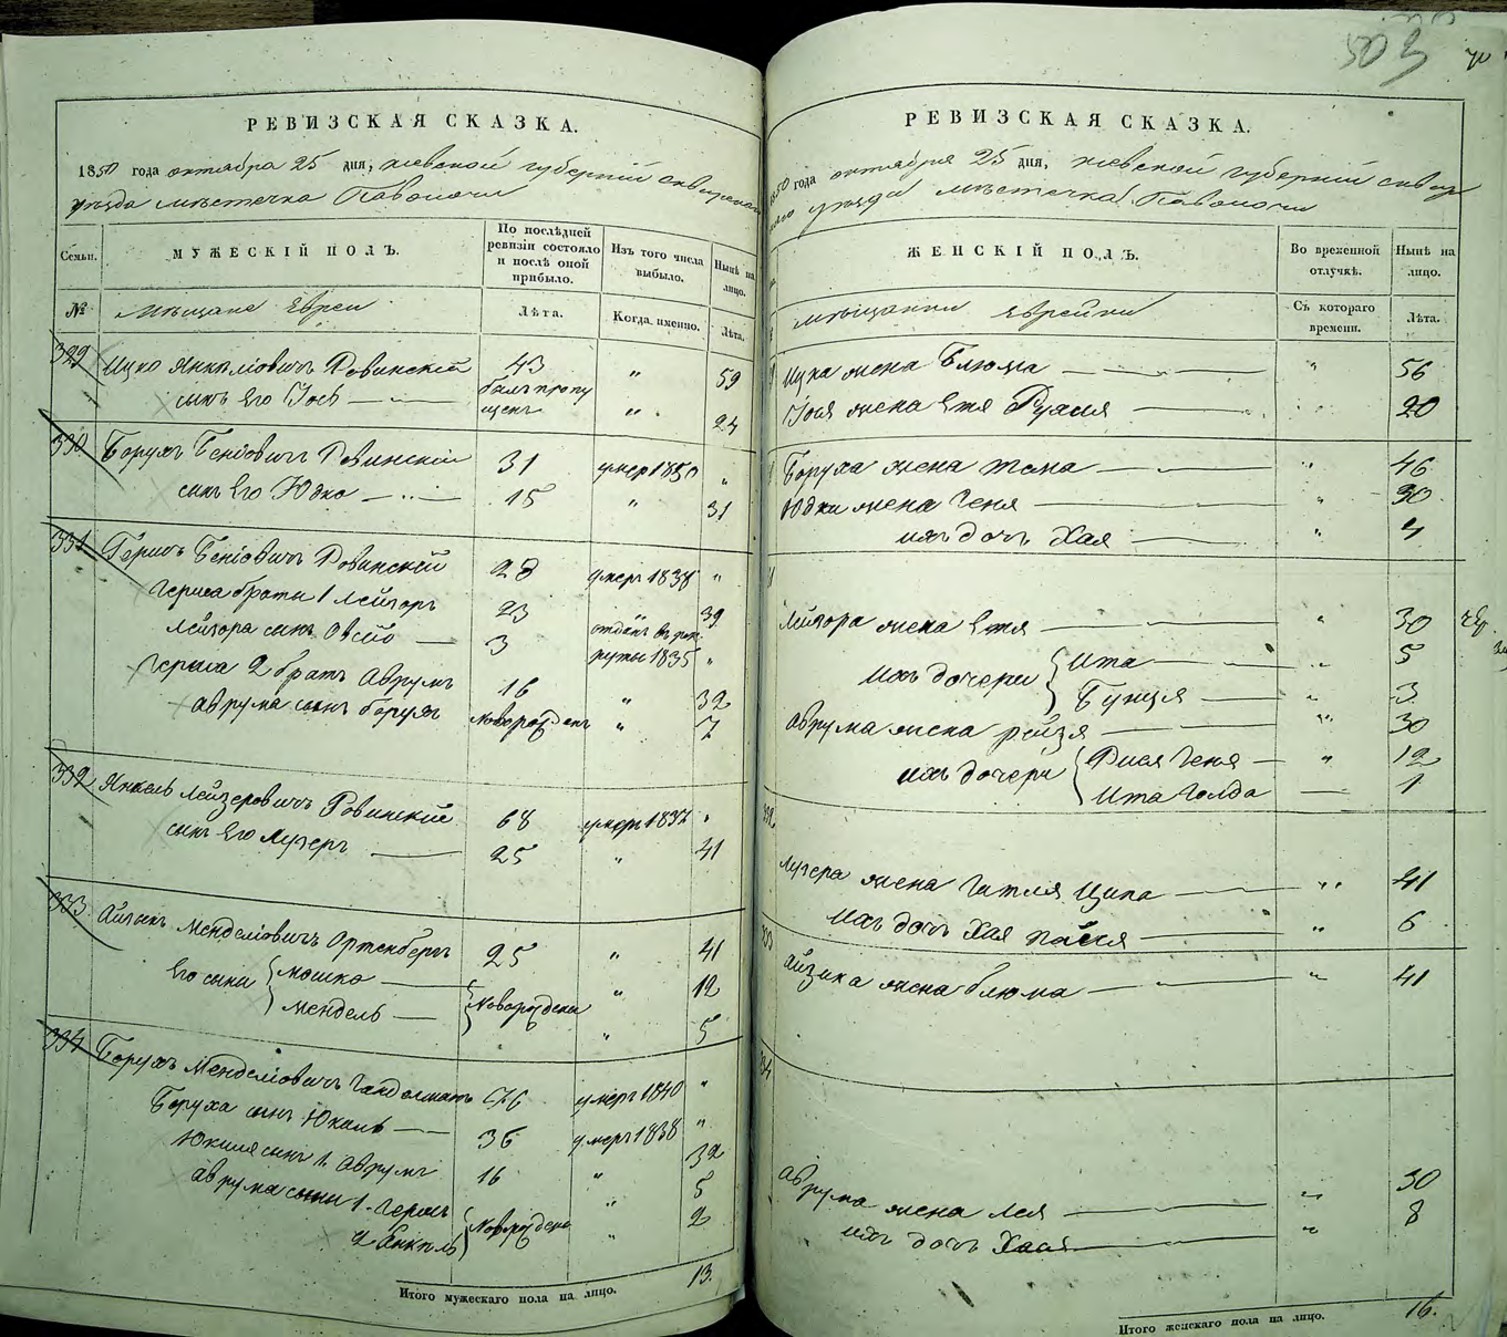 РЕВИЗСКАЯ СКАЗКА.
1850 года октября 25 дня, киевской губернiй сквирскаго
уѣзда мѣстечка Паволочи
Семьи.
МУЖЕСКІЙ ПОЛЪ.
По послѣдней ревизіи состояло и послѣ оной прибыло.
Изъ того числа выбыло.
Нынѣ на лицо.
№
мѣщане Евреи
Лѣта.
Когда именно.
Лѣта.
329 Ицко Янкелiовичъ Ровинскiй 43 „ 59
сынъ Его Iось былъ пропущенъ „ 24
330 Борухъ Бенiовичъ Ровинскiй 31 умер 1850 „
сынъ Его Юдко 15 „ 31
331 Гершъ Бенiовичъ Ровинскiй 28 умеръ 1838 „
Герша братъ 1 Лейзоръ 23 „ 39
Лейзора сынъ Овсiй 3 отданъ въ рекруты 1835 „
Герша 2 братъ Аврумъ 16 „ 32
Аврума сынъ борухъ новорожденъ „ 7
332 Янкель Лейзеровичъ Ровинскiй 68 умеръ 1837 „
сынъ Его Лузеръ 25 „ 41
333 Айзикъ Менделiовичъ Ортенбергъ 25 „ 41
Его сыны { мошко „ 12
мендель } новорождены „ 5
334 Борухъ Менделiовичъ 56 умеръ 1840 „
Боруха сынъ Юкель 36 умеръ 1838 „
Юкеля сынъ 1. Аврумъ 16 „ 32
Аврума сыны 1. Герш „ 5
2 Янкель } новорождены „ 2
Итого мужескаго пола на лицо. 13.
503
РЕВИЗСКАЯ СКАЗКА.
1850 года октября 25 дня, киевской губернiй сквирскаго
уѣзда мѣстечка Паволочи
ЖЕНСКІЙ ПОЛЪ.
Во временной отлучкѣ.
Нынѣ на лицо.
мѣщанки Еврейки
Съ котораго времени.
Лѣта.
Ицка жена Блюма „ 56
Iося жена Етя Рухля 20
Боруха жена „ 46
Юдки жена Геня „ 30
ихъ дочь Хая „ 4
Лейзора жена Етя „ 30
ихъ дочери { Ита „ 5
Бунця „ 3
Аврума жена рейзя „ 30
ихъ дочери { Геня „ 12
Ита Голда 1
332
Лузера жена Гитля Ципа „ 41
ихъ дочь Хая „ 6
333
Айзика жена блюма „ 41
334
Аврума жена Лея „ 30
ихъ дочь Хая „ 8
Итого женскаго пола на лицо. 16.